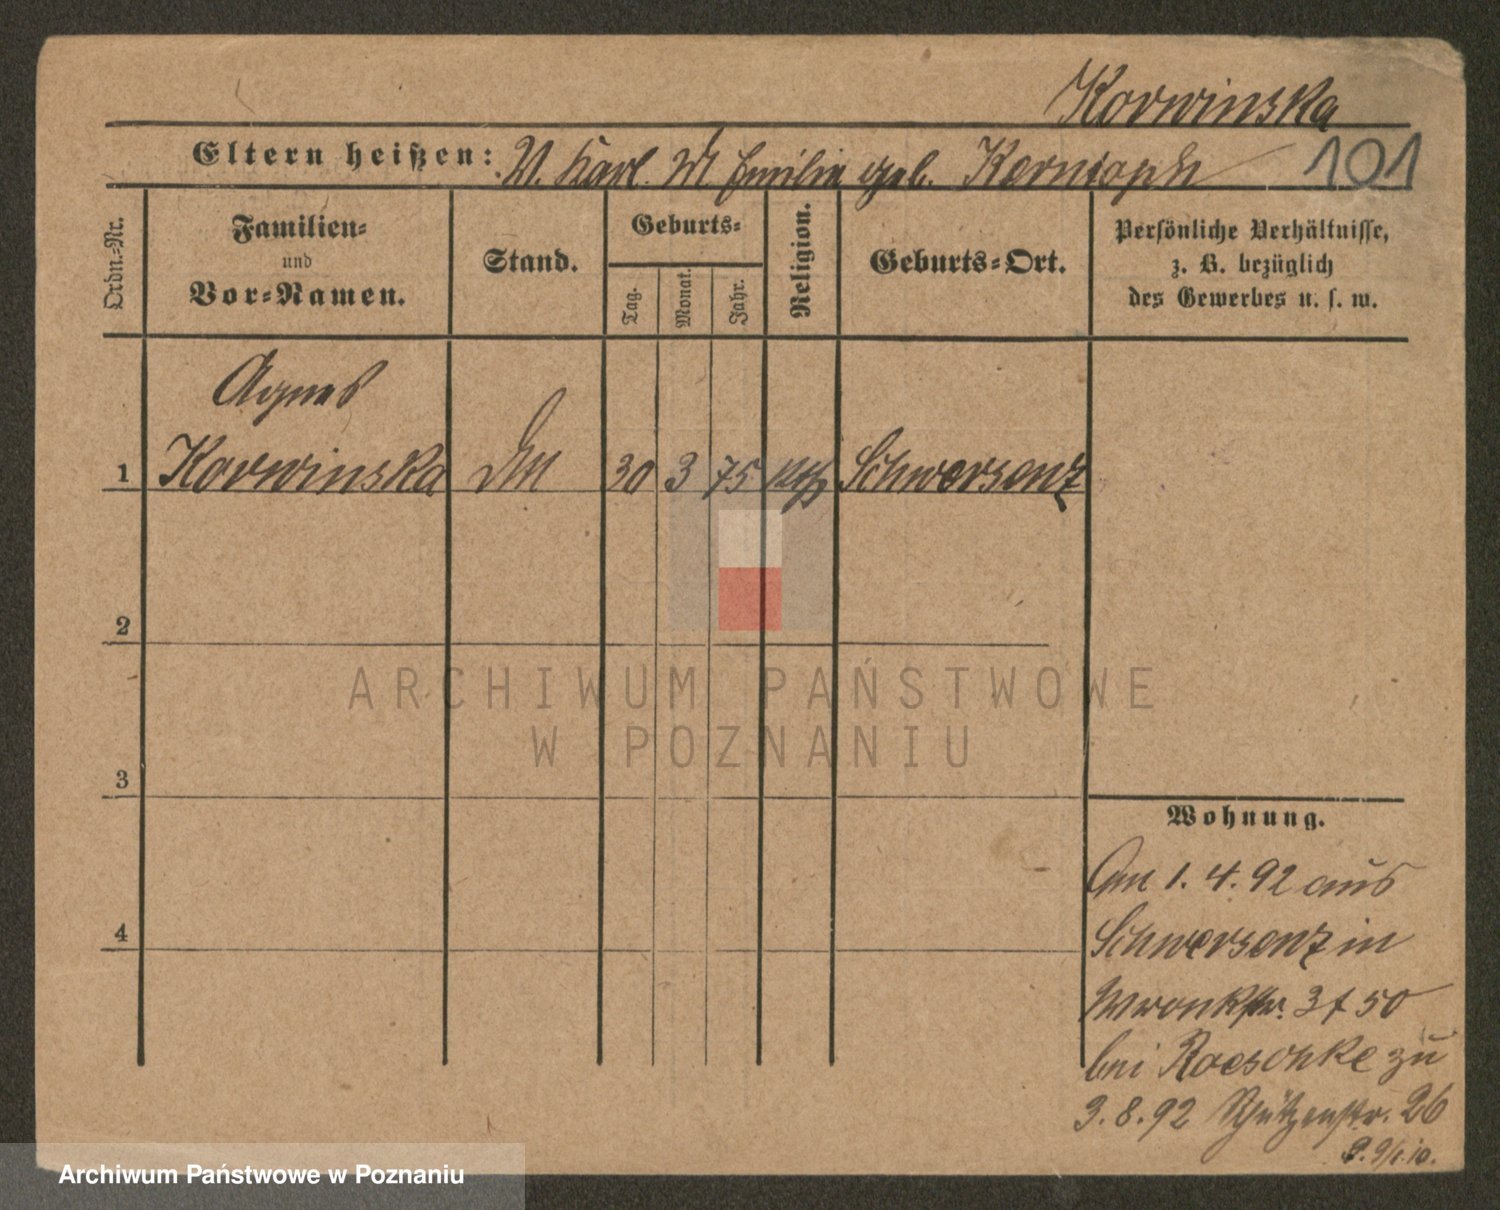 Korwinska
Eltern heißen: V. Karl. M Emilie geb. Kerntoph 101
Ordn.-Nr.
Familien-
und
Vor-Namen.
Stand.
Geburts-
Tag.
Monat.
Jahr.
Religion.
Geburts-Ort.
Persönliche Verhältnisse,
z. B. bezüglich
des Gewerbes u. s. w.
Agnes
1 Korwinska 30 3 75 Schwersenz
2
3
4
Wohnung.
Am 1. 4. 92 aus
Schwersenz in
Wronkstr. 3 f 50
bei Raeschke zu
3. 8. 92 Schützenstr. 26
ARCHIWUM PAŃSTWOWE
W POZNANIU
Archiwum Państwowe w Poznaniu